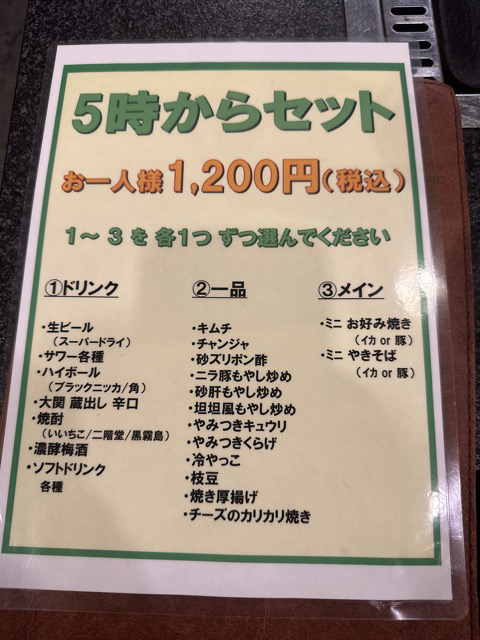 5時からセット
お一人様1,200円(税込)
1～3を各1つずつ選んでください
①ドリンク
・生ビール
(スーパードライ)
・サワー各種
・ハイボール
(ブラックニッカ/角)
・大関 蔵出し 辛口
・焼酎
(いいちこ/二階堂/黒霧島)
・濃醇梅酒
・ソフトドリンク
各種
②一品
・キムチ
・チャンジャ
・砂ズリポン酢
・ニラ豚もやし炒め
・砂肝もやし炒め
・坦坦風もやし炒め
・やみつきキュウリ
・やみつきくらげ
・冷やっこ
・枝豆
・焼き厚揚げ
・チーズのカリカリ焼き
③メイン
・ミニ お好み焼き
(イカ or 豚)
・ミニ やきそば
(イカ or 豚)